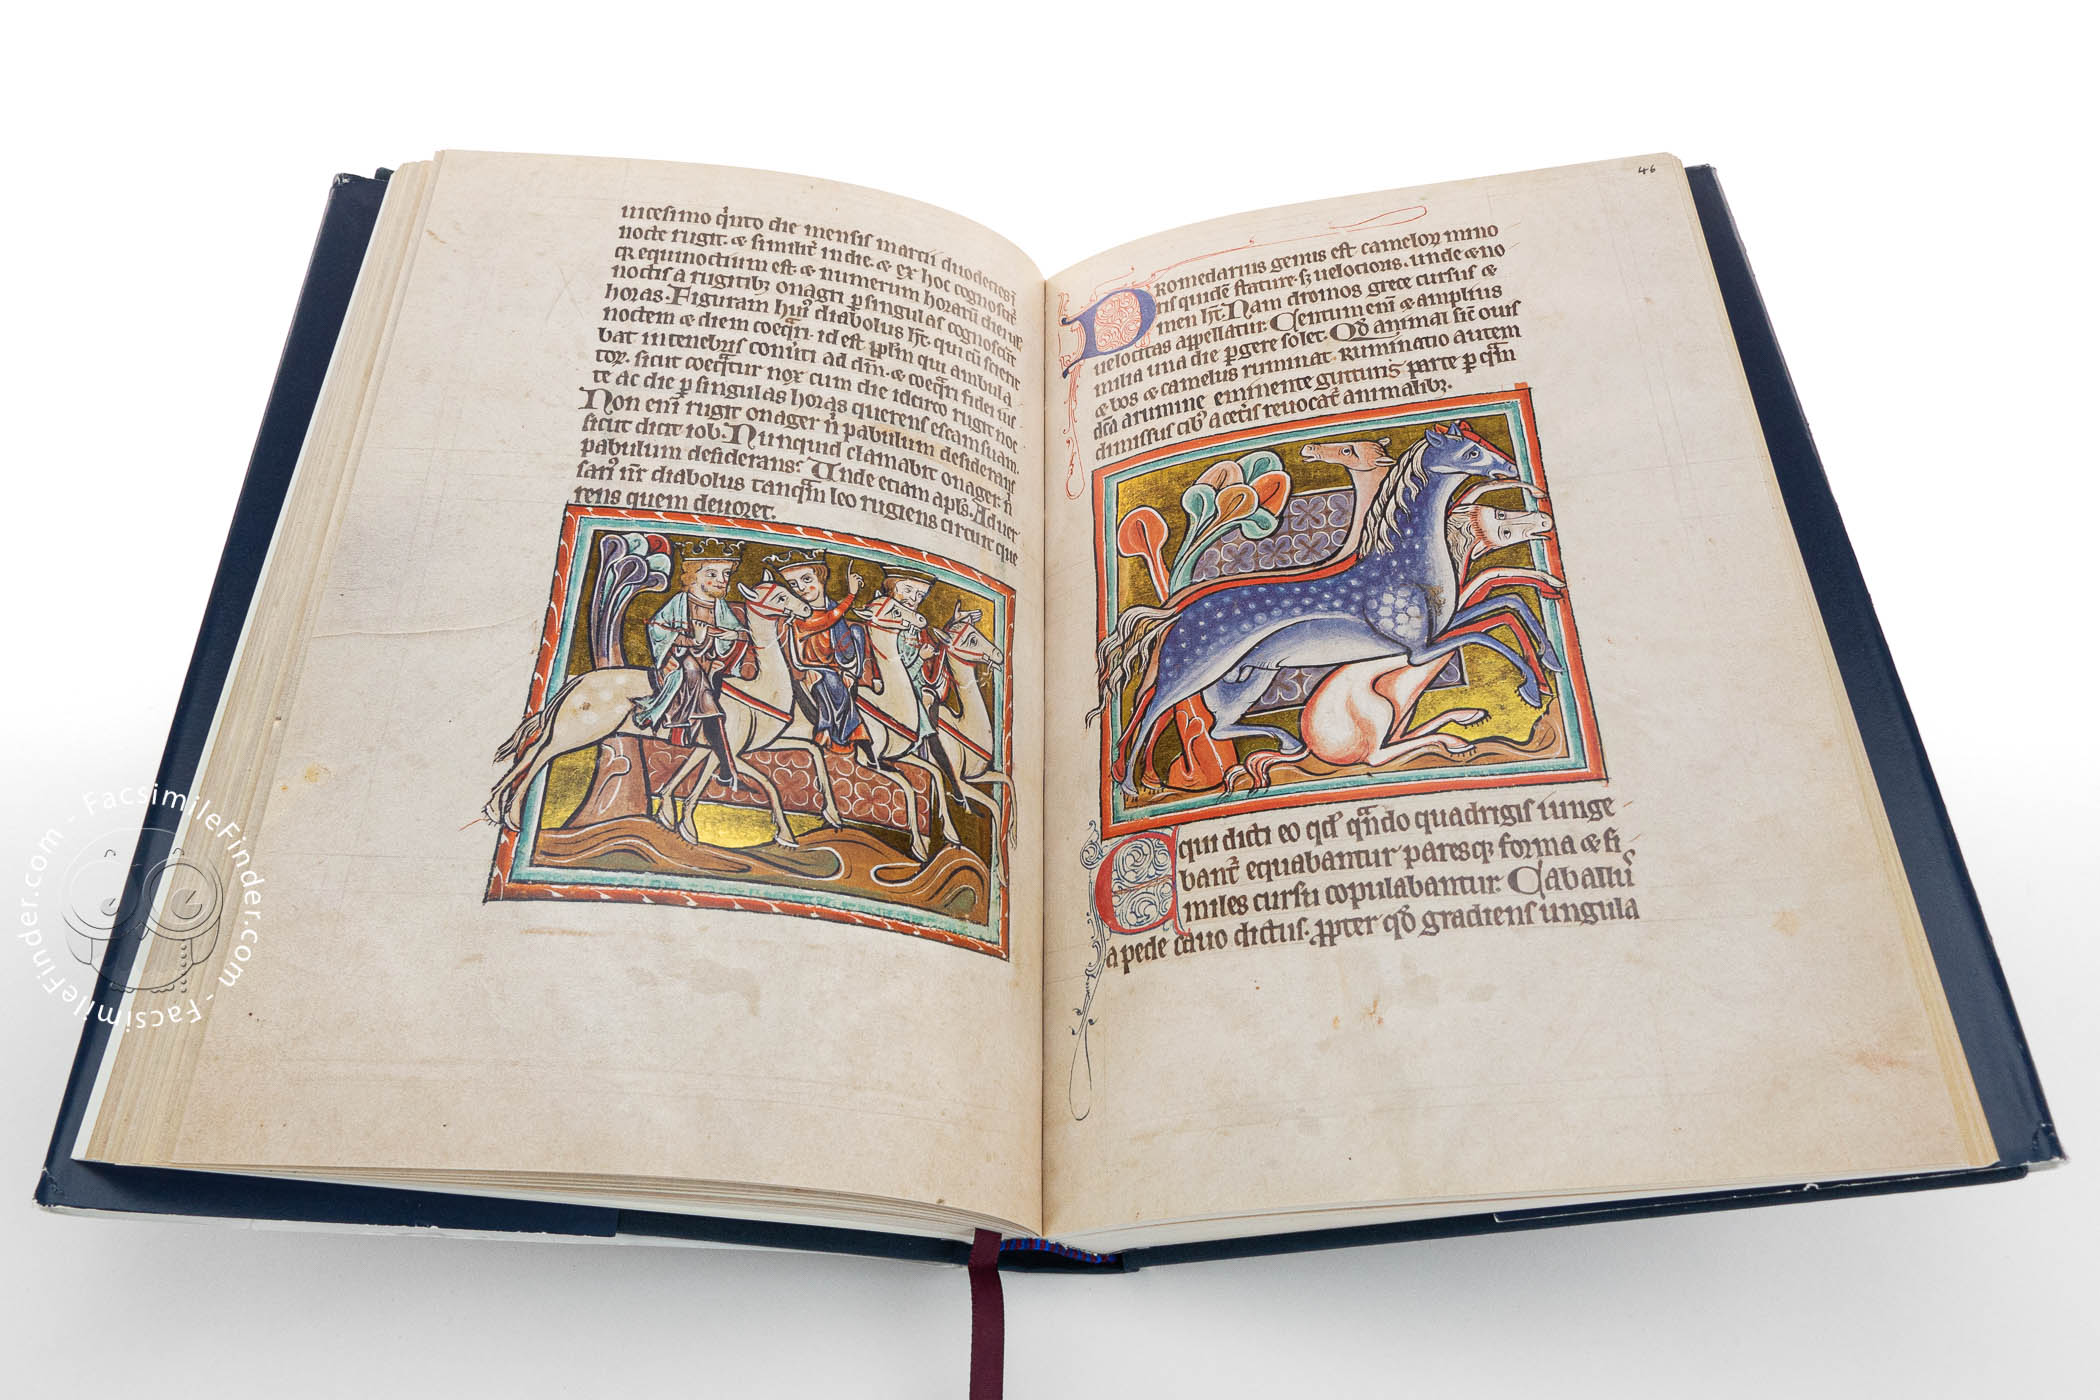 uicesimo q'nto die mensis martii duodecies ī
nocte rugit. & similit' in die. & ex hoc cognoscit'
qr equinoctium est. & numerum horarū diei uł
noctis a rugitib; onagri p singulas cognoscūt
horas. Figuram hui' diabolus ht. qui cū scierit
noctem & diem coeq̄ri. id est pplm qui ambula
bat in tenebris conu'ti ad dm̄. & coeq̄ri fidei ius
tor. sicut coeq̄tur nox cum die idcirco rugit noc
te ac die p singulas horas querens escam suam.
Non enī rugit onager n̄ pabulum desiderans
sicut dicit iob. Nunquid clamabit onager n̄
pabulum desiderans: Unde etiam apls. Aduer
sari' nr̄ diabolus tanq̄m leo rugiens circuit que
rens quem deuoret.
46
Dromedarius genus est cameloꝝ mino
ris quidē stature. sꝫ uelocioris. unde & no
men ht. Nam dromos grece cursus &
uelocitas appellatur. Centum enī & amplius
milia una die pgere solet. Qd animal sic̄ ouis
& bos & camelus ruminat. Ruminatio autem
dc̄a a rumine eminente gutturis parte p q̄m
dimissus cib' a certis reuocat' animalib;.
Equi dicti eo qd q̄ndo quadrigis iunge
bant' equabantur paresq; forma & si
miles cursu copulabantur. Caballus
a pede cauo dictus. ppter qd gradiens ungula
FacsimileFinder.com - FacsimileFinder.com -